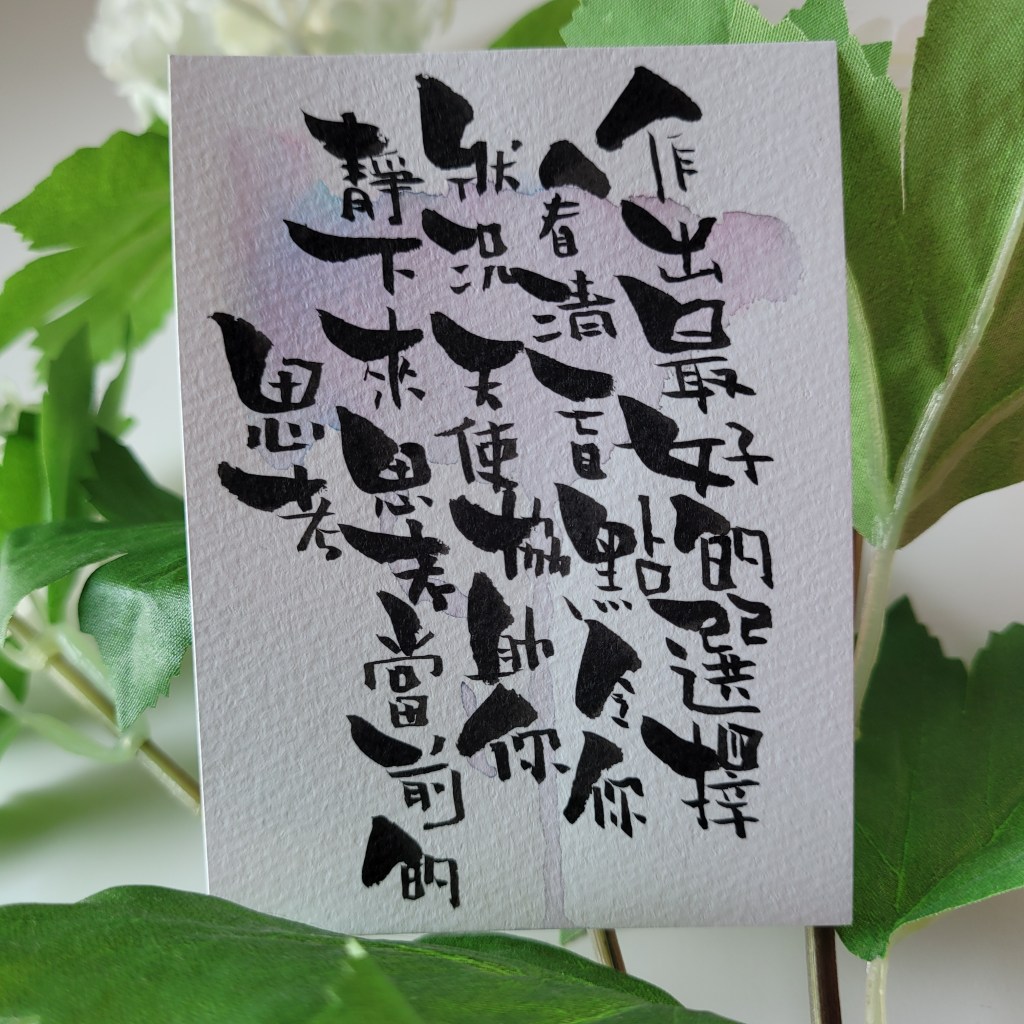 思考
靜下來思考當前的
狀況天使協助你
看清盲點令你
作出最好的選擇